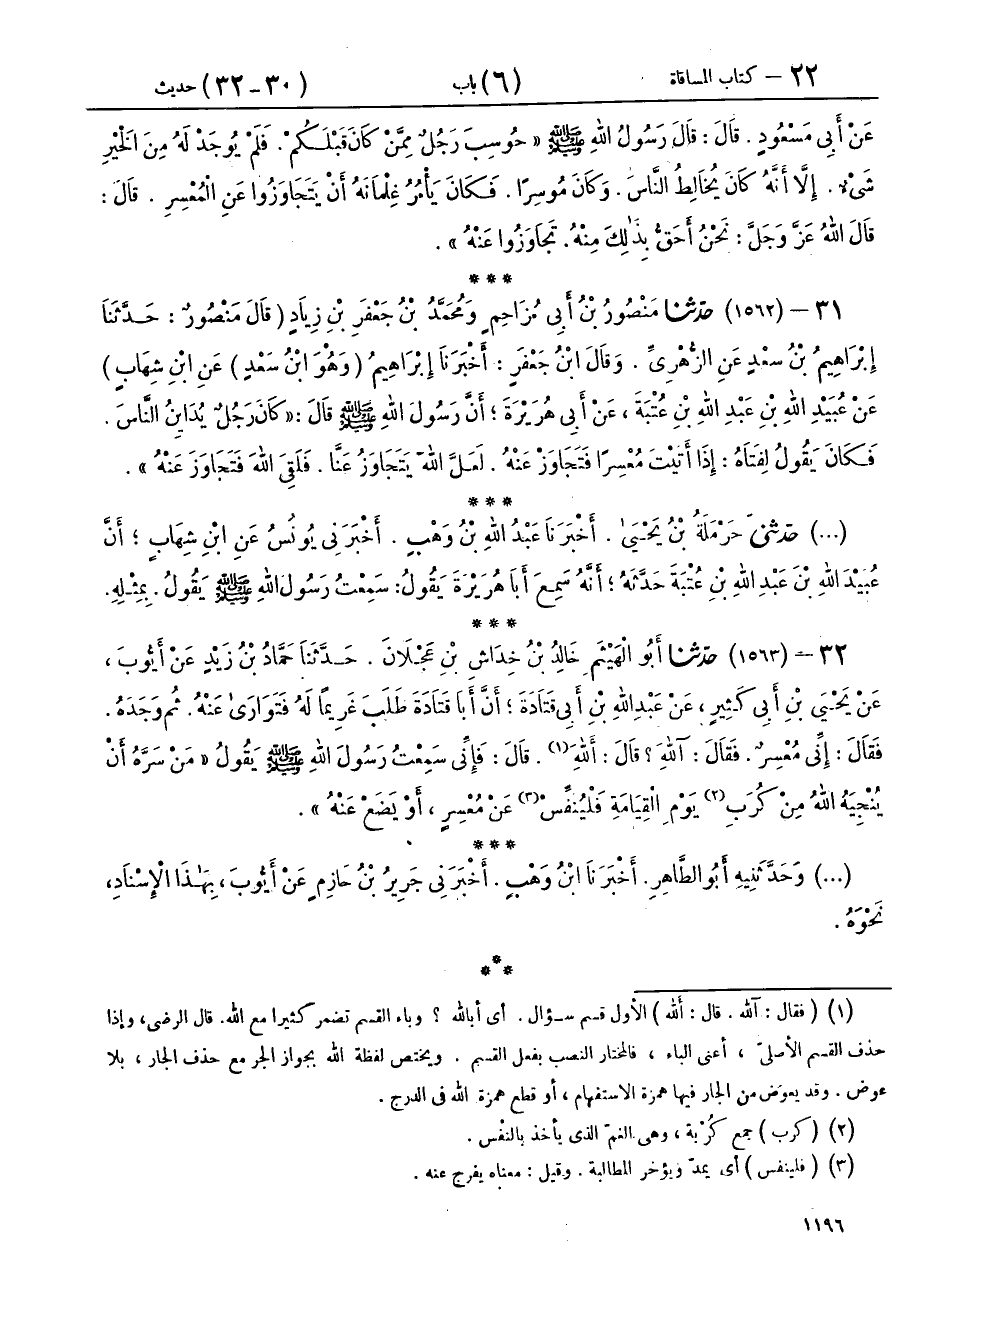 ٢٢ – كتاب المساقاة (٦) باب (٣٠-٣٢) حديث
عَنْ أَبِي مَسْعُودٍ . قَالَ : قَالَ رَسُولُ اللهِ ﷺ « حُوسِبَ رَجُلٌ مِمَّنْ كَانَ قَبْلَكُمْ . فَلَمْ يُوجَدْ لَهُ مِنَ الْخَيْرِ
شَيْءٌ . إِلَّا أَنَّهُ كَانَ يُخَالِطُ النَّاسَ . وَكَانَ مُوسِرًا . فَكَانَ يَأْمُرُ غِلْمَانَهُ أَنْ يَتَجَاوَزُوا عَنِ الْمُعْسِرِ . قَالَ :
قَالَ اللهُ عَزَّ وَجَلَّ : نَحْنُ أَحَقُّ بِذَٰلِكَ مِنْهُ . تَجَاوَزُوا عَنْهُ » .
* * *
٣١ – (١٥٦٢) حدّثنا مَنْصُورُ بْنُ أَبِي مُزَاحِمٍ وَمُحَمَّدُ بْنُ جَعْفَرِ بْنِ زِيَادٍ ( قَالَ مَنْصُورٌ : حَدَّثَنَا
إِبْرَاهِيمُ بْنُ سَعْدٍ عَنِ الزُّهْرِيِّ . وَقَالَ ابْنُ جَعْفَرٍ : أَخْبَرَنَا إِبْرَاهِيمُ ( وَهُوَ ابْنُ سَعْدٍ ) عَنِ ابْنِ شِهَابٍ )
عَنْ عُبَيْدِ اللهِ بْنِ عَبْدِ اللهِ بْنِ عُتْبَةَ ، عَنْ أَبِي هُرَيْرَةَ ؛ أَنَّ رَسُولَ اللهِ ﷺ قَالَ : « كَانَ رَجُلٌ يُدَايِنُ النَّاسَ .
فَكَانَ يَقُولُ لِفَتَاهُ : إِذَا أَتَيْتَ مُعْسِرًا فَتَجَاوَزْ عَنْهُ . لَعَلَّ اللهَ يَتَجَاوَزُ عَنَّا . فَلَقِيَ اللهَ فَتَجَاوَزَ عَنْهُ » .
* * *
(...) حدّثني حَرْمَلَةُ بْنُ يَحْيَىٰ . أَخْبَرَنَا عَبْدُ اللهِ بْنُ وَهْبٍ . أَخْبَرَنِي يُونُسُ عَنِ ابْنِ شِهَابٍ ؛ أَنَّ
عُبَيْدَ اللهِ بْنَ عَبْدِ اللهِ بْنِ عُتْبَةَ حَدَّثَهُ ؛ أَنَّهُ سَمِعَ أَبَا هُرَيْرَةَ يَقُولُ : سَمِعْتُ رَسُولَ اللهِ ﷺ يَقُولُ . بِمِثْلِهِ .
* * *
٣٢ – (١٥٦٣) حدّثنا أَبُو الْهَيْثَمِ خَالِدُ بْنُ خِدَاشِ بْنِ عَجْلَانَ . حَدَّثَنَا حَمَّادُ بْنُ زَيْدٍ عَنْ أَيُّوبَ ،
عَنْ يَحْيَىٰ بْنِ أَبِي كَثِيرٍ ، عَنْ عَبْدِ اللهِ بْنِ أَبِي قَتَادَةَ ؛ أَنَّ أَبَا قَتَادَةَ طَلَبَ غَرِيمًا لَهُ فَتَوَارَىٰ عَنْهُ . ثُمَّ وَجَدَهُ .
فَقَالَ : إِنِّي مُعْسِرٌ . فَقَالَ : آللهِ ؟ قَالَ : أَللهِ(١) . قَالَ : فَإِنِّي سَمِعْتُ رَسُولَ اللهِ ﷺ يَقُولُ « مَنْ سَرَّهُ أَنْ
يُنْجِيَهُ اللهُ مِنْ كُرَبِ(٢) يَوْمِ الْقِيَامَةِ فَلْيُنَفِّسْ(٣) عَنْ مُعْسِرٍ ، أَوْ يَضَعْ عَنْهُ » .
* * *
(...) وَحَدَّثَنِيهِ أَبُو الطَّاهِرِ . أَخْبَرَنَا ابْنُ وَهْبٍ . أَخْبَرَنِي جَرِيرُ بْنُ حَازِمٍ عَنْ أَيُّوبَ ، بِهَٰذَا الْإِسْنَادِ ،
نَحْوَهُ .
* * *
(١) ( فقال : آلله . قال : ألله ) الأول قسم سؤال . أى أبالله ؟ وباء القسم تضمر كثيرا مع الله . قال الرضى ، وإذا
حذف القسم الأصلىّ ، أعنى الباء ، فالمختار النصب بفعل القسم . ويختص لفظة الله بجواز الجر مع حذف الجار ، بلا
عوض . وقد يعوّض من الجار فيها همزة الاستفهام ، أو قطع همزة الله فى الدرج .
(٢) ( كرب ) جمع كُرْبة ، وهى الغمّ الذى يأخذ بالنفْس .
(٣) ( فلينفس ) أى يمدّ ويؤخر المطالبة . وقيل : معناه يفرج عنه .
١١٩٦